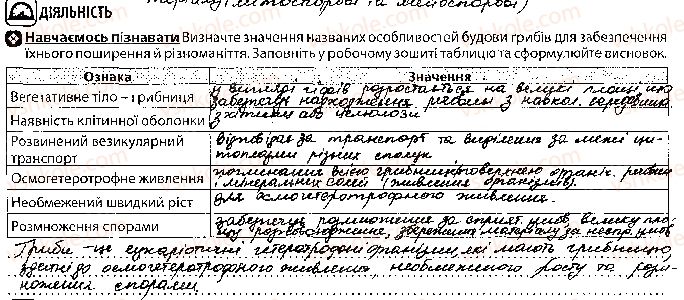 (мітоспорові та мейоспорові)
ДІЯЛЬНІСТЬ
Навчаємось пізнавати Визначте значення названих особливостей будови грибів для забезпечення
їхнього поширення й різноманіття. Заповніть у робочому зошиті таблицю та сформулюйте висновок.
Ознака Значення
Вегетативне тіло – грибниця у вигляді гіфів розростається на великі площі, що
забезпечує надходження речовин з навкол. середовища
Наявність клітинної оболонки з хітину або целюлози
Розвинений везикулярний відповідає за транспорт та виділення за межі ци-
транспорт топлазми різних сполук
Осмогетеротрофне живлення поглинання всією грибницею поверхнею органіч. речовин
і мінеральних солей (живлення організмів)
Необмежений швидкий ріст для осмогетеротрофного живлення
Розмноження спорами забезпечує розмноження за сприят. умов, велику пло-
щу розповсюдження, збереження матеріалу за неспр. умов
Гриби – це еукаріотичні гетеротрофні організми, які мають грибницю,
здатні до осмогетеротрофного живлення, необмеженого росту та роз-
множення спорами